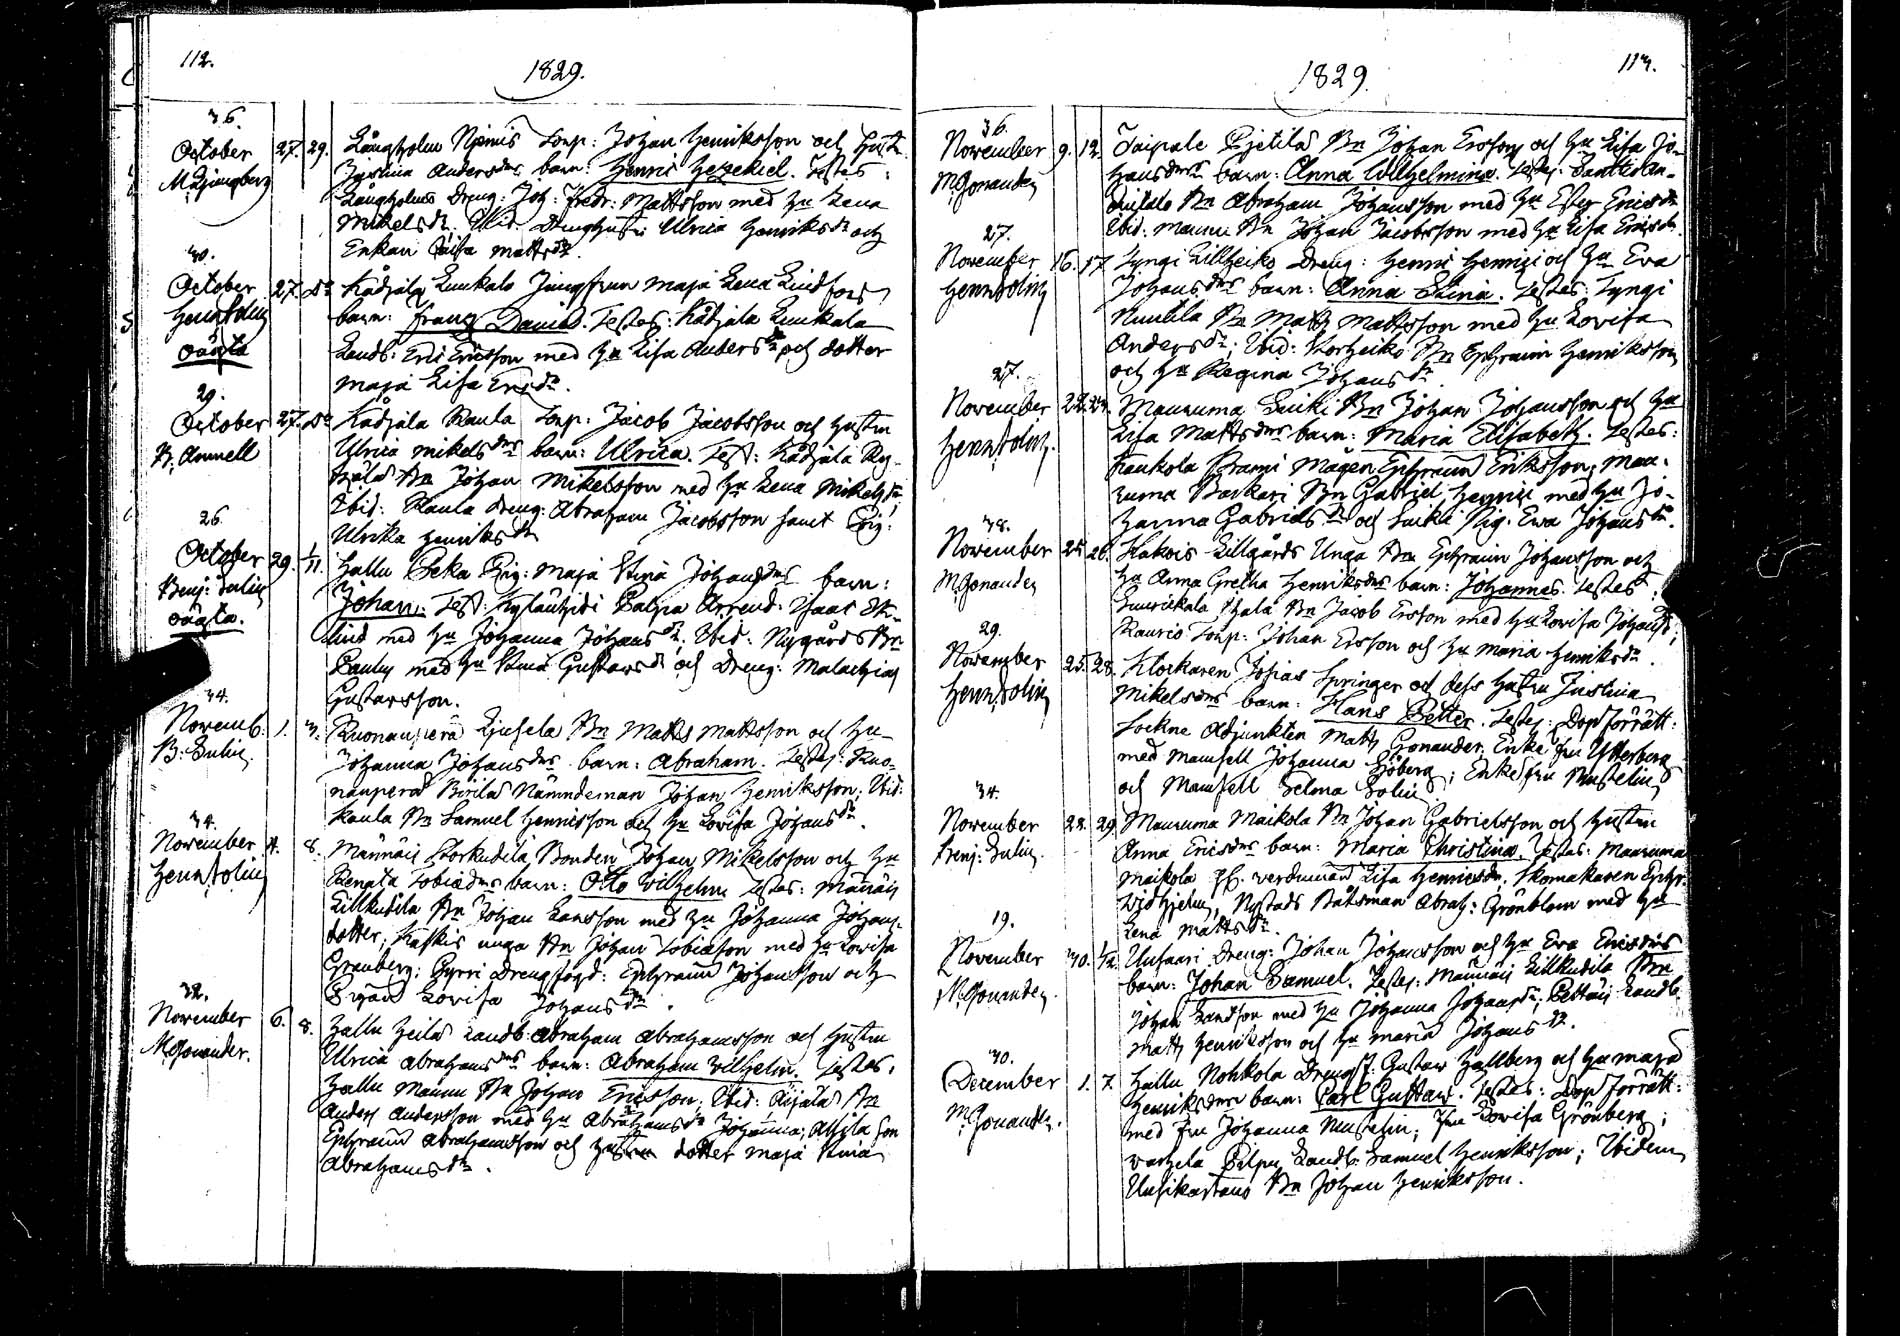 112.
1829.
36.
October 27. 29. Långholm Niemis Torp: Johan Henriksson och Hustr.
M. Ljungberg Justina Andersdrs barn: Henric Hezekiel. Testes:
Långholms Dreng: Joh: Fredr: Mattsson med Hu Lena
Mikelsdr; Ibid Drenghustr: Ulrica Henriksdr och
Enkan Caisa Mattsdr.
30.
October 27. Do Kådjala Kuukala Jungfrun Maja Lena Lindfors
Henr. Solin barn: Franz Daniel. Testes: Kådjala Kuukala
oägta Landb: Eric Ericsson med Hu Lisa Andersdr och dotter
Maja Lisa Ersdr.
29.
October 27. Do Kådjala Raula Torp: Jacob Jacobsson och Hustru
B. Ammell Ulrica Mikelsdrs barn: Ulrica. Test: Kådjala
Bn Johan Mikelsson med Hu Lena Mikelsdr;
Ibid: Raula Dreng: Abraham Jacobsson samt Pig:
Ulrika Henriksdr
26.
October 29. 1/11. Hallu Peka Pig: Maja Stina Johansdrs barn:
Benj: Salin Johan. Test: Arrend: Isaac
oägta. med Hu Johanna Johansdr; Ibid: Nygårds Bn
med Hu Stina Gustavsdr och Dreng: Malachias
Gustavsson.
34.
Novemb: 1. 3. Ruonanperä Bn Matts Mattsson och Hu
B: Salin Johanna Johansdrs barn: Abraham. Testes: Ruo-
nanperä Pirilä Nämndeman Johan Henriksson; Ibid:
Kaula Bn Samuel Henricsson och Hu Lovisa Johansdr.
34.
November 4. 8. Männäis Storkudila Bonden Johan Mikelsson och Hu
Henr. Solin Renata Tobiædrs barn: Otto Wilhelm. Testes: Männäis
Lillkudila Bn Johan Larsson med Hu Johanna Johans-
dotter; Kaskis unga Bn Johan Tobiæson med Hu Lovisa
Granberg; Pyrri Drengfogd: Ephraim Johansson och
Pigan Lovisa Johansdr.
32.
November 6. 8. Hallu Heilä Landb: Abraham Abrahamsson och Hustru
M. Gonander. Ulrica Abrahamsdrs barn: Abraham Wilhelm. Testes:
Hallu Mannu Bn Johan Ericsson. Ibid: Äijälä Bn
Anders Andersson med Hu Abrahamsdr Johanna; Son
Ephraim Abrahamsson och Hustru dotter Maja Stina
Abrahamsdr.
113.
1829.
36.
November 9. 12. Taipale Pietilä Bn Johan Ersson och Hu Lisa Jo-
M. Gonander hansdrs barn: Anna Wilhelmina. Testes:
Bn Abraham Johansson med Hu Ester Ericsdr
Ibid: Mannu Bn Johan Jacobsson med Hu Lisa Ericsdr.
27.
November 16. 17. Tyngi Lillheiko Dreng: Henric Henrici och Hu Eva
Henr. Solin Johansdrs barn: Anna Stina. Testes: Tyngi
Nuutila Bn Matts Mattsson med Hu Lovisa
Andersdr; Ibid: Storheiko Bn Ephraim Henriksson
och Hu Regina Johansdr
27.
November 22. 24. Maurumaa Suiki Bn Johan Johansson och Hu
Henr. Solin. Lisa Mattsdrs barn: Maria Elisabeth. Testes:
Haukola Prami Mågen Ephraim Eriksson; Mau-
ruma Backari Bn Gabriel Henrici med Hu Jo-
hanna Gabrielsdr och Suiki Pig: Eva Johansdr.
38.
November 25. 26. Hakois Lillgårds Unga Bn Ephraim Johansson och
M. Gonander Hu Anna Gretha Henriksdrs barn: Johannes. Testes:
Bn Jacob Ersson med Hu Lovisa Johansdr;
Torp: Johan Ersson och Hu Maria Henriksdr.
29.
November 25. 28. Klockaren Josias Springer och dess Hustru Justina
Henr. Solin Mikelsdrs barn: Hans Petter. Testes: Dopförrätt:
Sockne Adjunkten Matts Gonander, Enke fru Utterberg
med Mamsell Johanna Sjöberg; Enke fru Muselius
och Mamsell Selma Solin
34.
November 28. 29. Mauruma Maikola Bn Johan Gabrielsson och Hustru
Benj: Salin. Anna Ericsdrs barn: Maria Christina. Testes: Mauruma
Maikola Lisa Henricsdr, Skomakaren Ephr:
Nystads Båtsman Abrah: Grönblom med Hu
Lena Mattsdr.
19.
November 30. 1/12. Unsaari Dreng: Johan Johansson och Hu Eva Ericsdrs
M. Gonander. barn: Johan Samuel. Testes: Männäis Lillkudila Bn
Johan Larsson med Hu Johanna Johansdr; Pettäis Landb:
Matts Henriksson och Hu Maria Johansdr.
30.
December 1. 7. Hallu Nohkola Dreng J: Gustaw Hallberg och Hu Maja
M. Gonander. Henriksdrs barn: Carl Gustaw. Testes: Dopförrätt:
med fru Johanna Muselin; Fru Lovisa Grönberg;
Warhela Pilpu Landb: Samuel Henriksson; Ibidem
Unsikartano Bn Johan Henriksson.